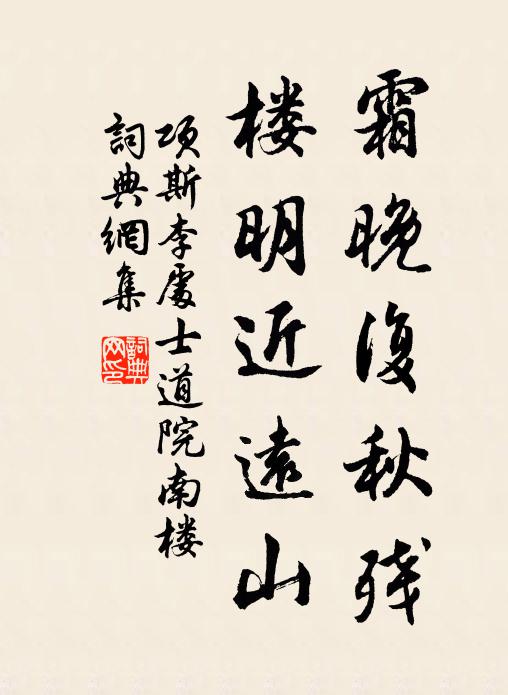 霜晚复秋残
楼明近遠山
项斯李處士道院南楼
詞典網集
詞典網印